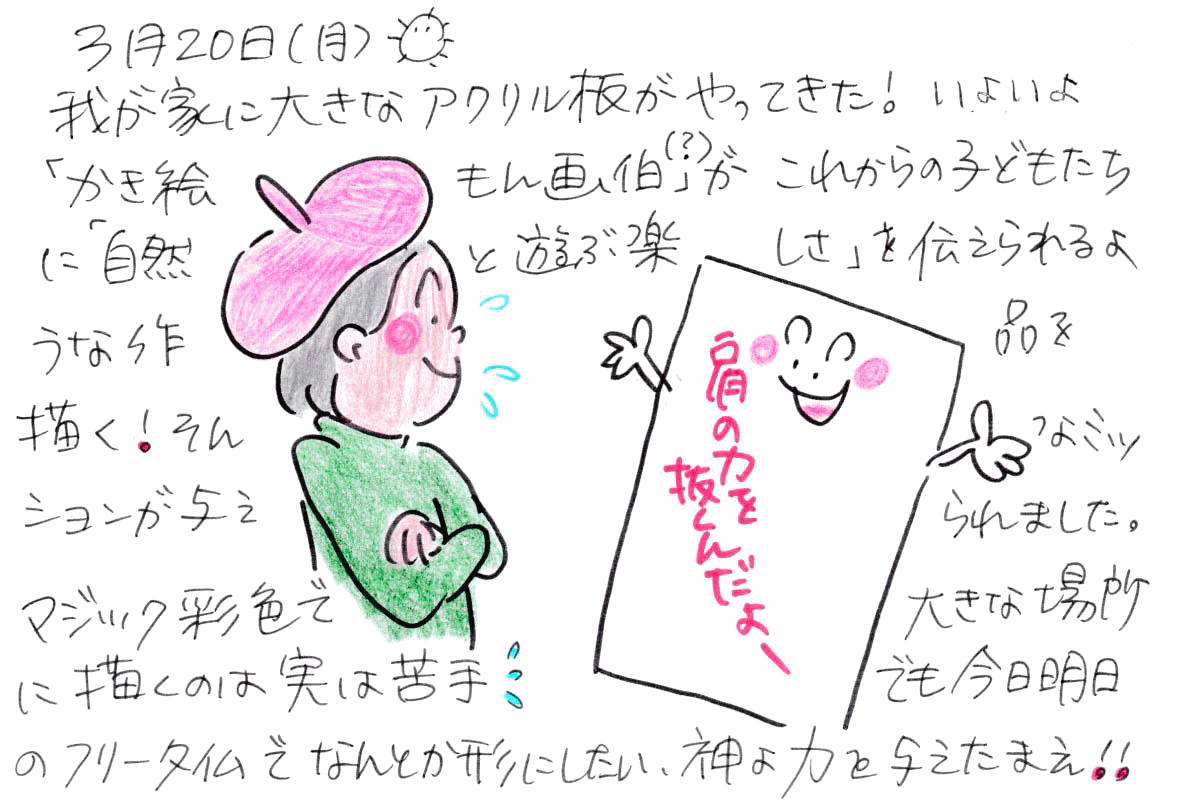 3月20日(月)
我が家に大きなアクリル板がやってきた! いよいよ
「かき絵もん画伯(?)」がこれからの子どもたち
に「自然と遊ぶ楽しさ」を伝えられるよ
うな作品を
描く!そんなミッ
ションが与えられました。
マジック彩色で大きな場所
に描くのは実は苦手でも今日明日
のフリータイムでなんとか形にしたい、神よ力を与えたまえ!!
肩の力を
抜くんだよー